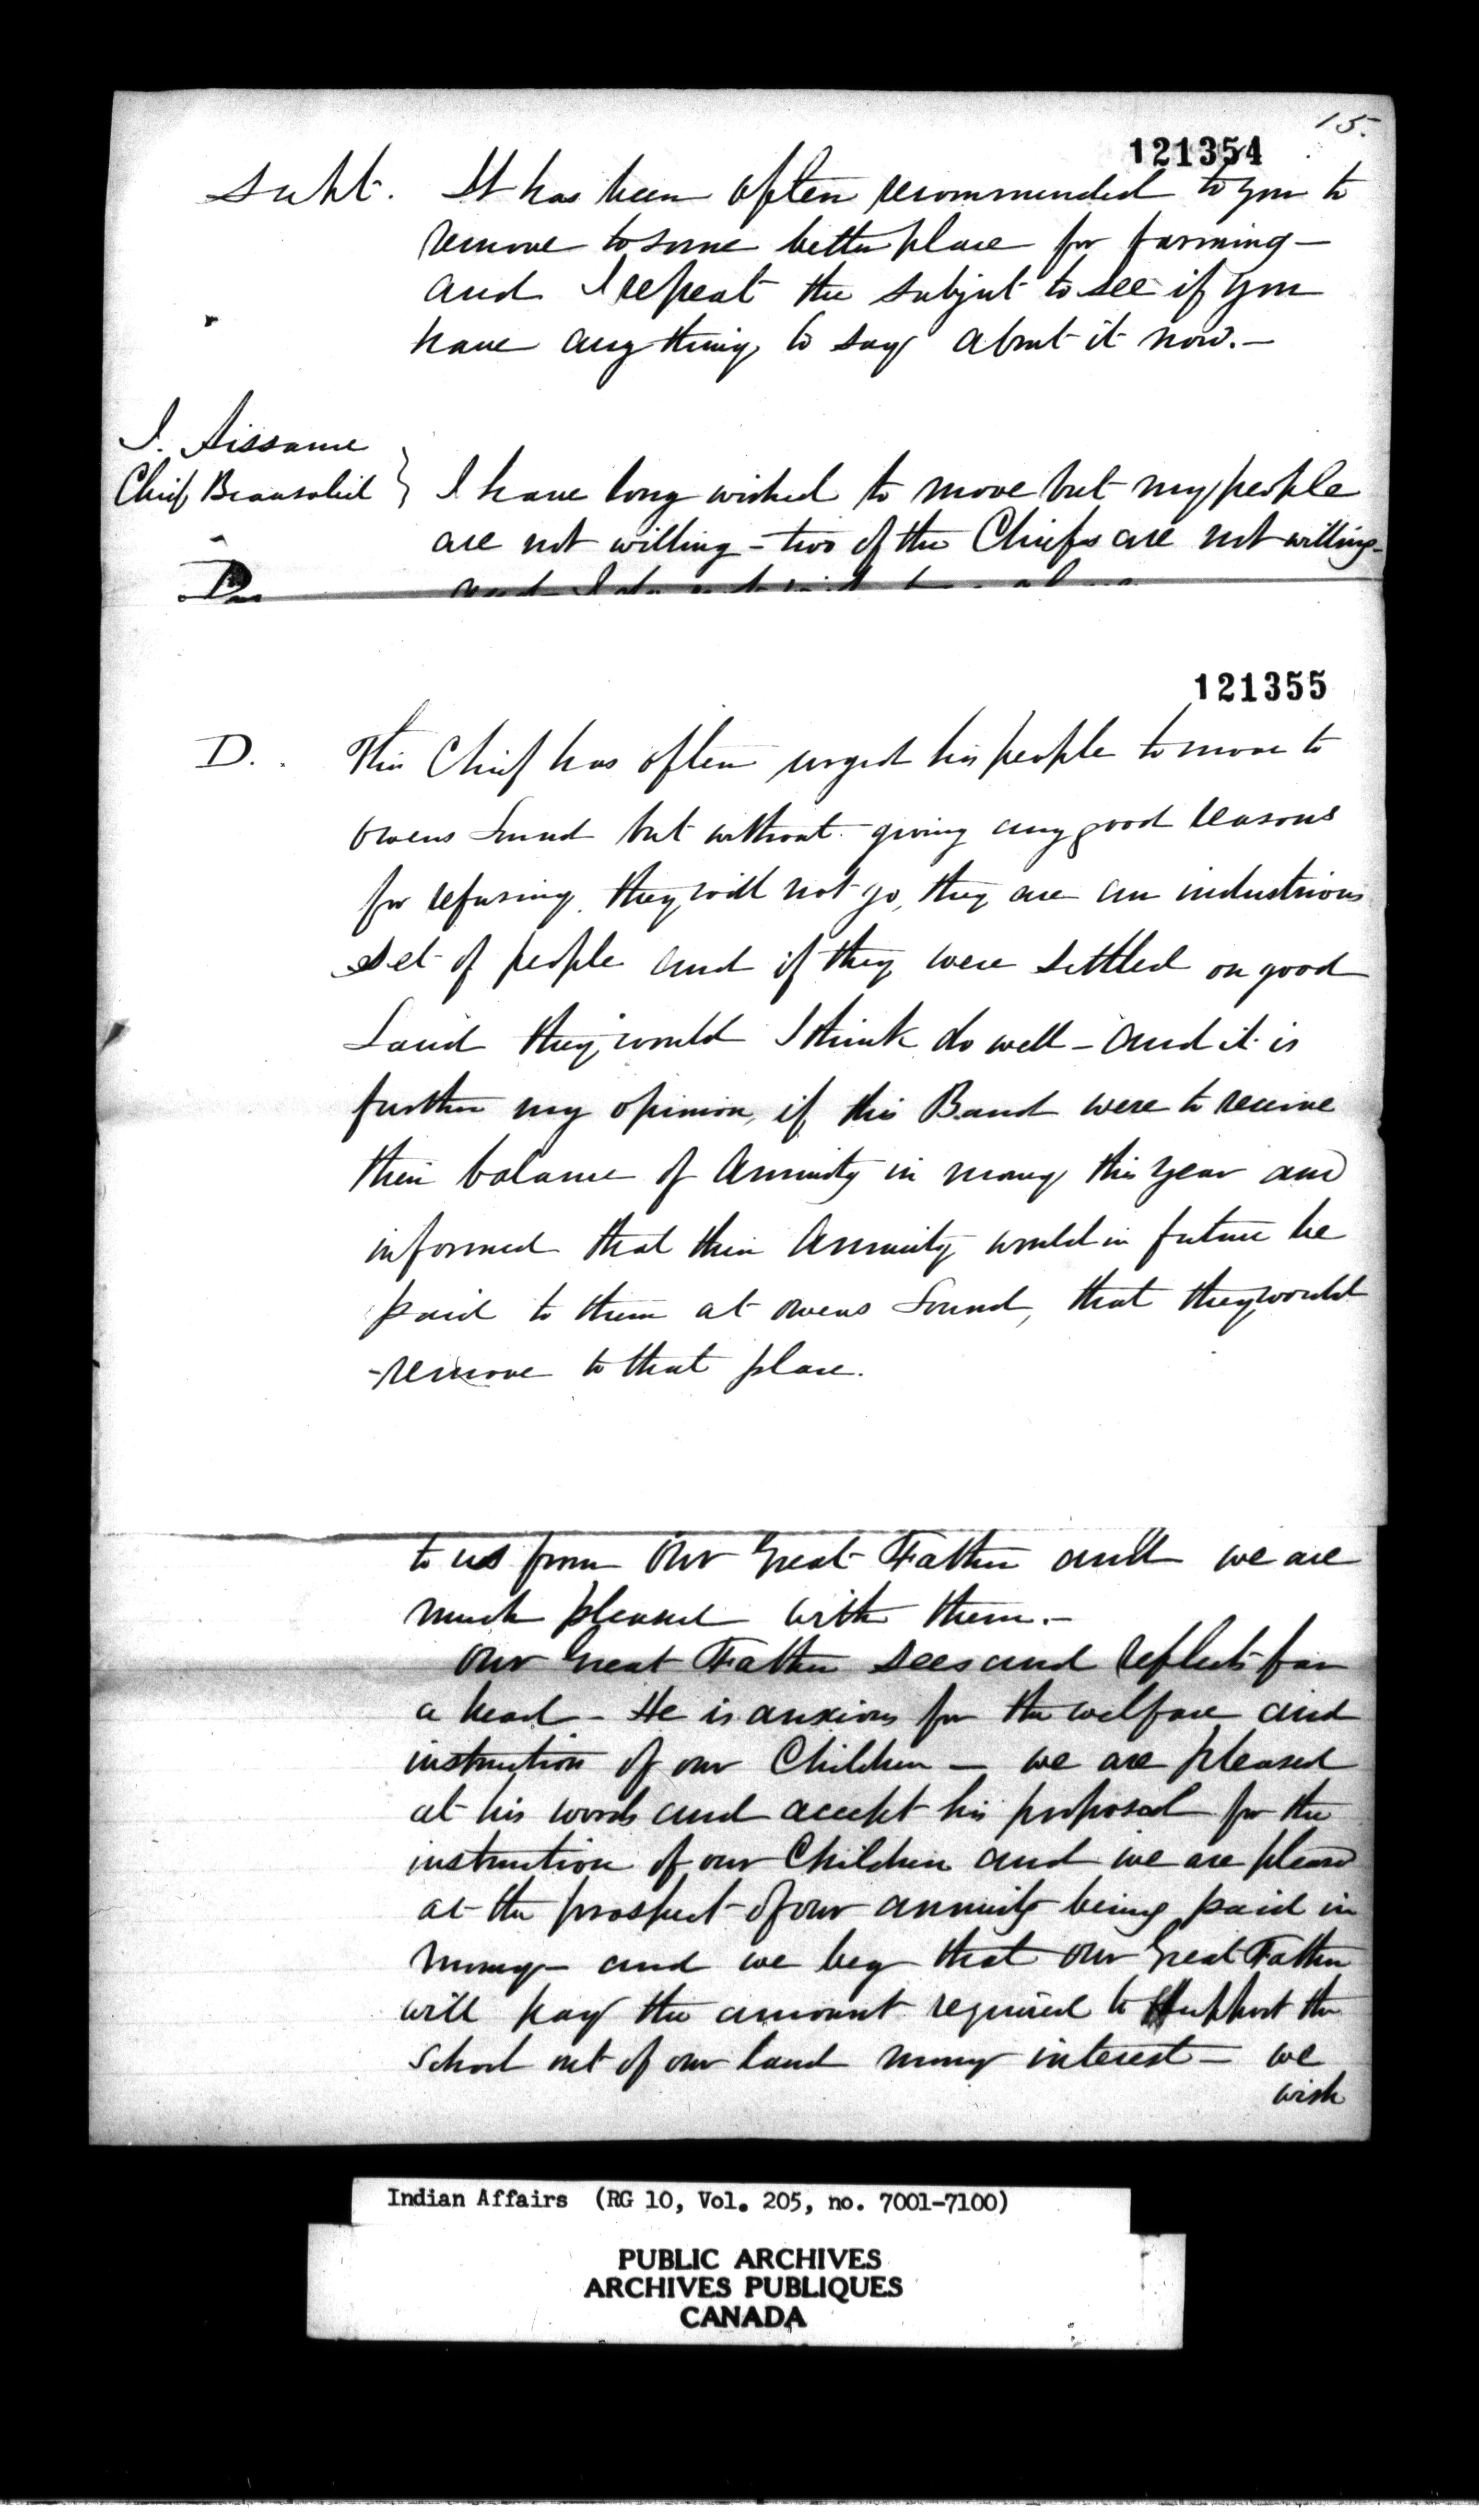 15.
121354
Supt. It has been often recommended to you to
remove to some better place for farming -
and I repeat the subject to see if you
have any thing to say about it now. -
J. Aissance
Chief Beausoleil } I have long wished to move but my people
are not willing - two of the Chiefs are not willing -
D
121355
D. This Chief has often urged his people to move to
Owens Sound but without giving any good reasons
for refusing they will not go, they are an industrious
set of people and if they were settled on good
Land they would I think do well - and it is
further my opinion, if this Band were to receive
their balance of Annuity in money this year and
informed that their Annuity would in future be
paid to them at Owens Sound, that they would
-remove to that place.
to us from Our Great Father and we are
much pleased with them. -
Our Great Father sees and reflects far
a head - He is anxious for the welfare and
instruction of our Children - we are pleased
at his words and accept his proposal for the
instruction of our Children and we are pleased
at the prospect of our annuity being paid in
money - and we beg that Our Great Father
will pay the amount required to support the
School out of our land money interest - we
wish
Indian Affairs (RG 10, Vol. 205, no. 7001-7100)
PUBLIC ARCHIVES
ARCHIVES PUBLIQUES
CANADA